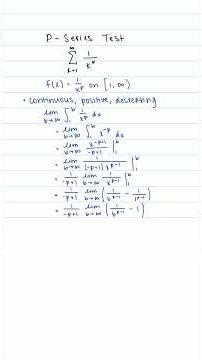 P-Series Test
∞ Σ k=1 1/k^p
f(x) = 1/x^p on [1, ∞)
• continuous, positive, decreasing
lim b→∞ ∫_1^b 1/x^p dx
= lim b→∞ ∫_1^b x^-p dx
= lim b→∞ x^(-p+1)/(-p+1) |_1^b
= lim b→∞ 1/((-p+1) x^(p-1)) |_1^b
= 1/(-p+1) lim b→∞ 1/x^(p-1) |_1^b
= 1/(-p+1) lim b→∞ (1/b^(p-1) - 1/1^(p-1))
= 1/(-p+1) lim b→∞ (1/b^(p-1) - 1)